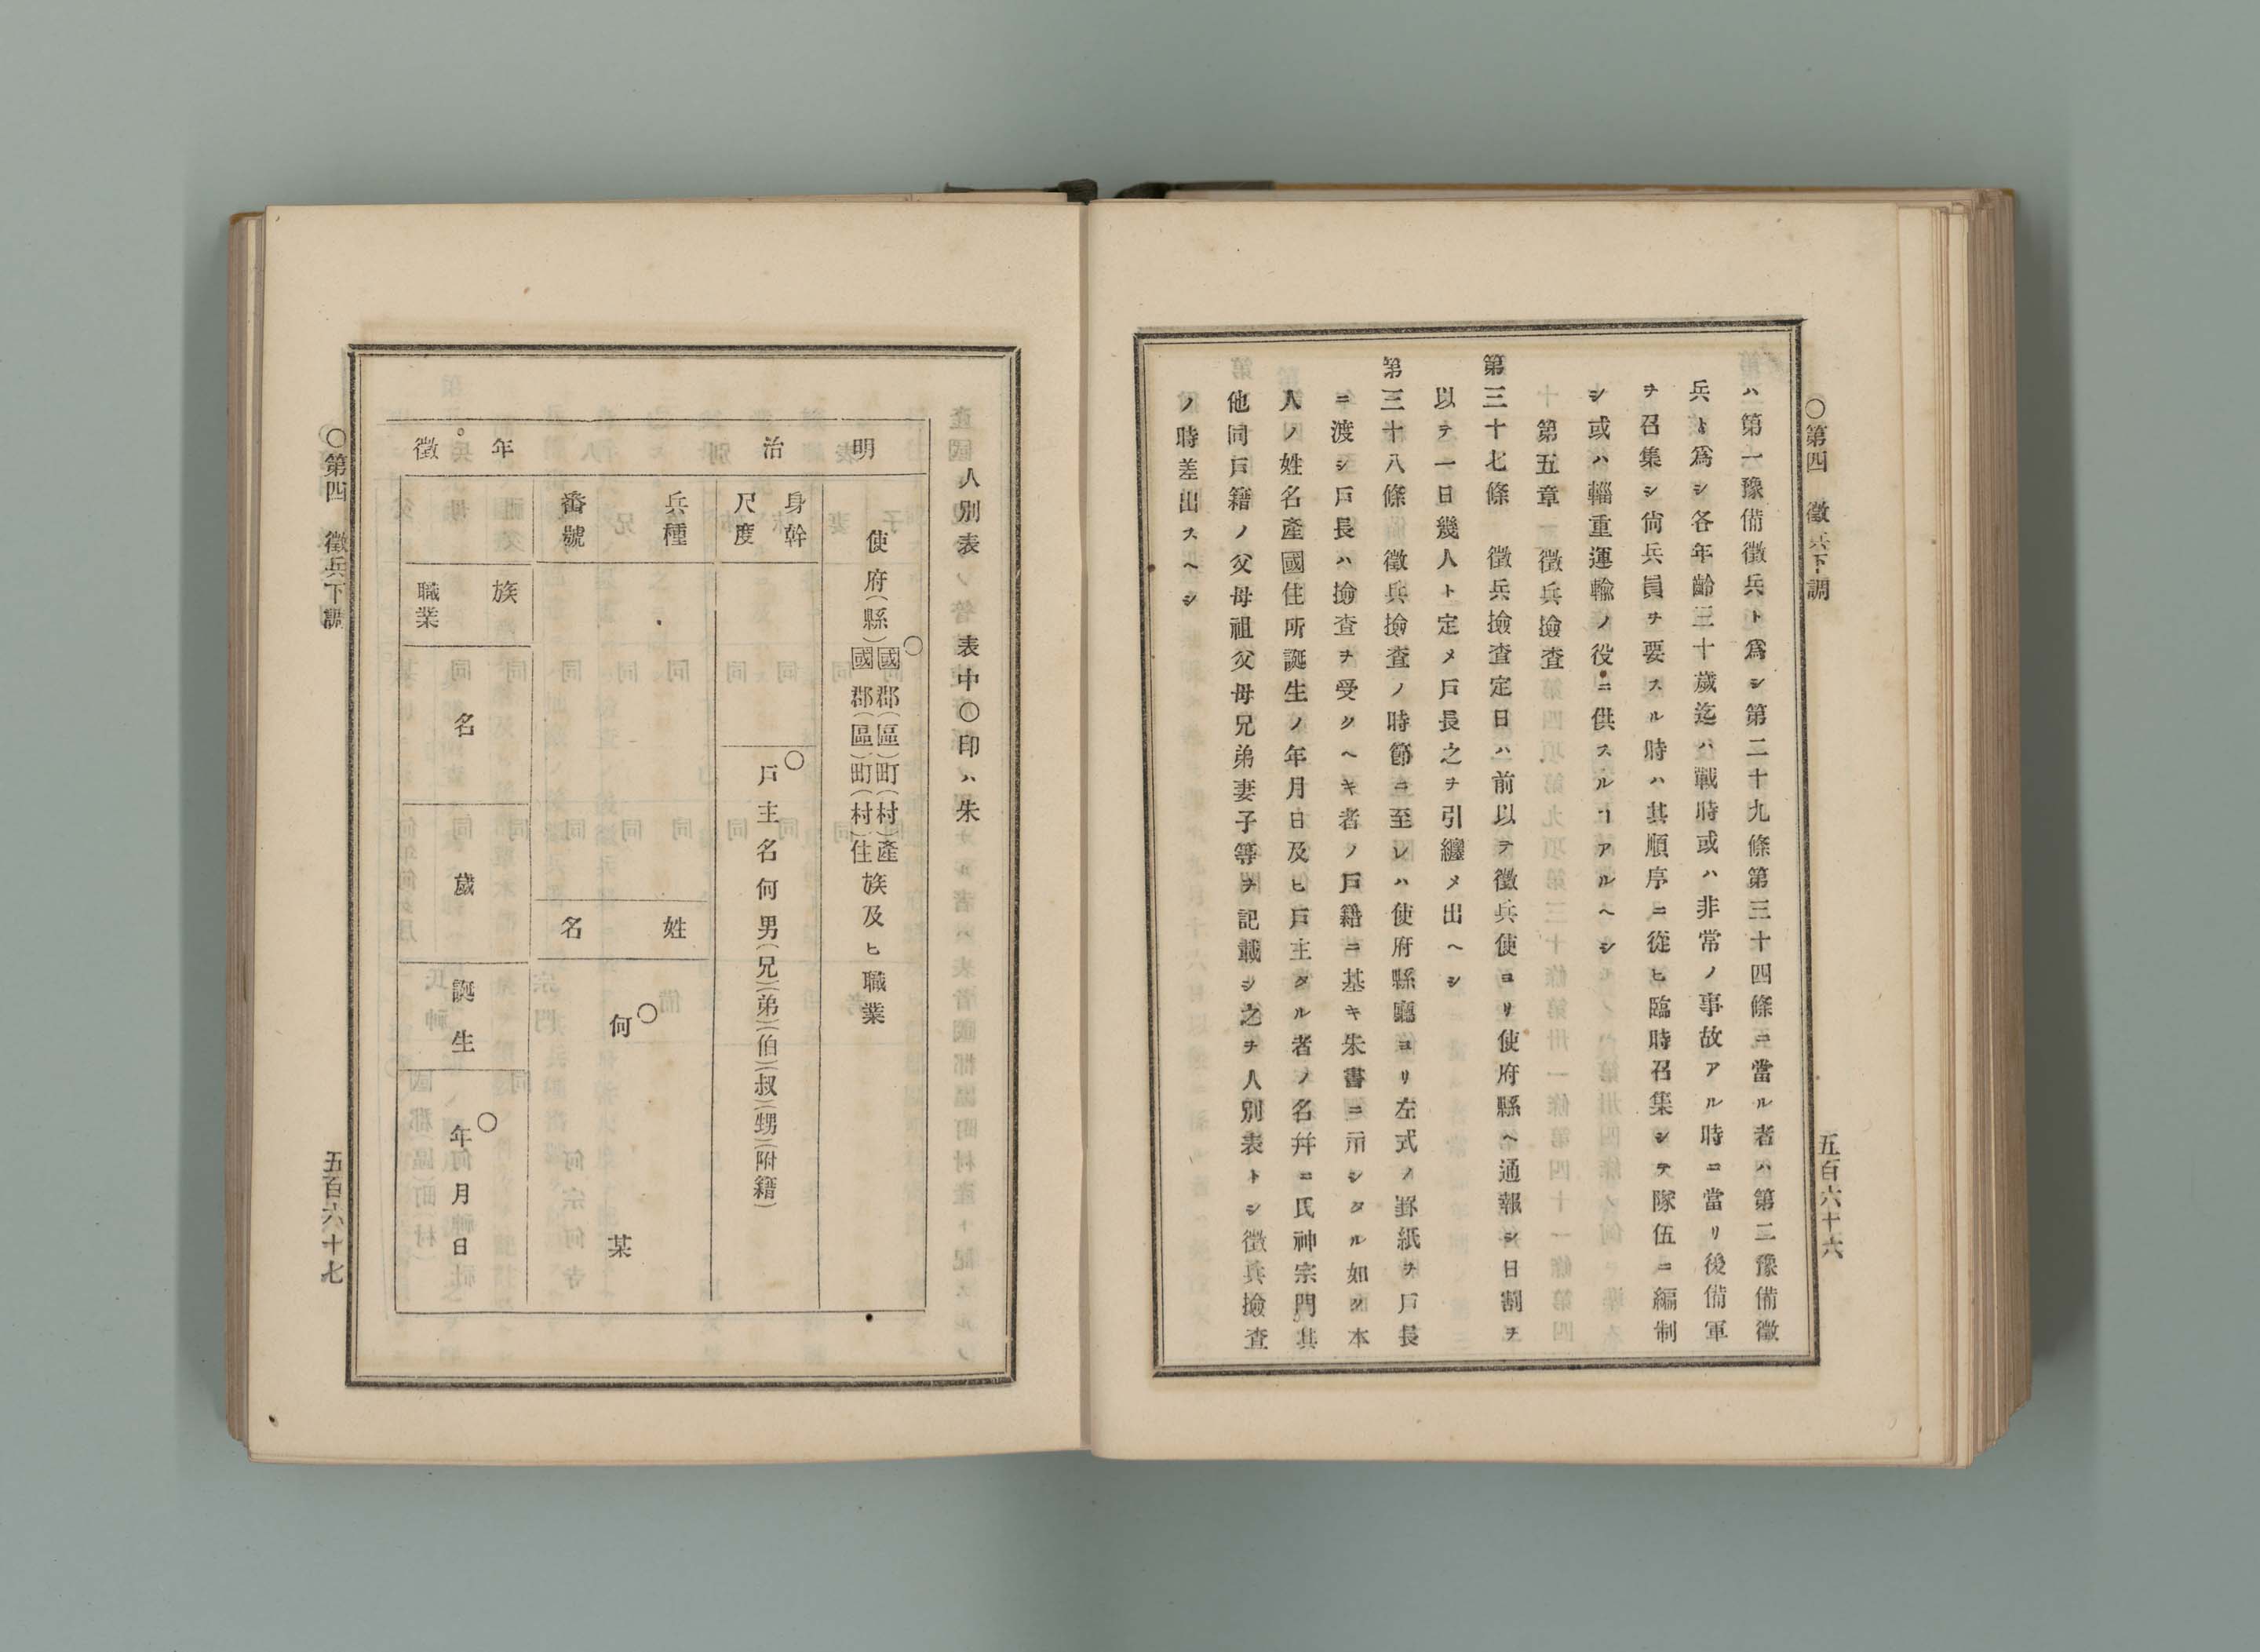 ○第四　徵兵下調
五百六十六
ハ第一豫備徵兵ト爲シ第二十九條第三十四條ニ當ル者ハ第二豫備徵
兵ト爲シ各年齡三十歲迄ハ戰時或ハ非常ノ事故アル時ニ當リ後備軍
ヲ召集シ尙兵員ヲ要スル時ハ其順序ニ從ヒ臨時召集シテ隊伍ニ編制
シ或ハ輜重運輸ノ役ニ供スルヿアルヘシ
第五章　徵兵撿査
第三十七條　徵兵撿査定日ハ前以テ徵兵使ヨリ使府縣ヘ通報シ日割ヲ
以テ一日幾人ト定メ戶長之ヲ引纏メ出ヘシ
第三十八條　徵兵撿査ノ時節ニ至レハ使府縣廳ヨリ左式ノ罫紙ヲ戶長
ニ渡シ戶長ハ撿査ヲ受クヘキ者ノ戶籍ニ基キ朱書ニ示シタル如ク本
人ノ姓名產國住所誕生ノ年月日及ヒ戶主タル者ノ名幷ニ氏神宗門其
他同戶籍ノ父母祖父母兄弟妻子等ヲ記載シ之ヲ人別表トシ徵兵撿査
ノ時差出スヘシ
人別表　表中○印ハ朱
明治　年　徵
使府(縣)
○
國郡(區)町(村)產
國郡(區)町(村)住
族及ヒ職業
身幹
尺度
○
戶主名何男(兄)(弟)(伯)(叔)(甥)(附籍)
兵種
番號
姓名
○
何　某
族
職業
名
歲
誕生
○
年　月　日
○第四　徵兵下調
五百六十七